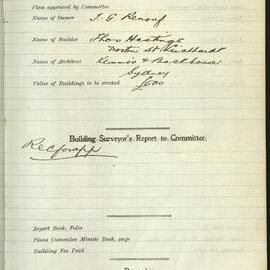 Plan approved by Committee
Name of Owner J. G. Renouf
Name of Builder Thos Hastings
Norton St Leichhardt
Name of Architect Kennis & Backhouse
Sydney
Value of Buildings to be erected £600
Building Surveyor's Report to Committee:
Rec for app
Report Book, Folio
Plans Committee Minute Book, page
Building Fee Paid